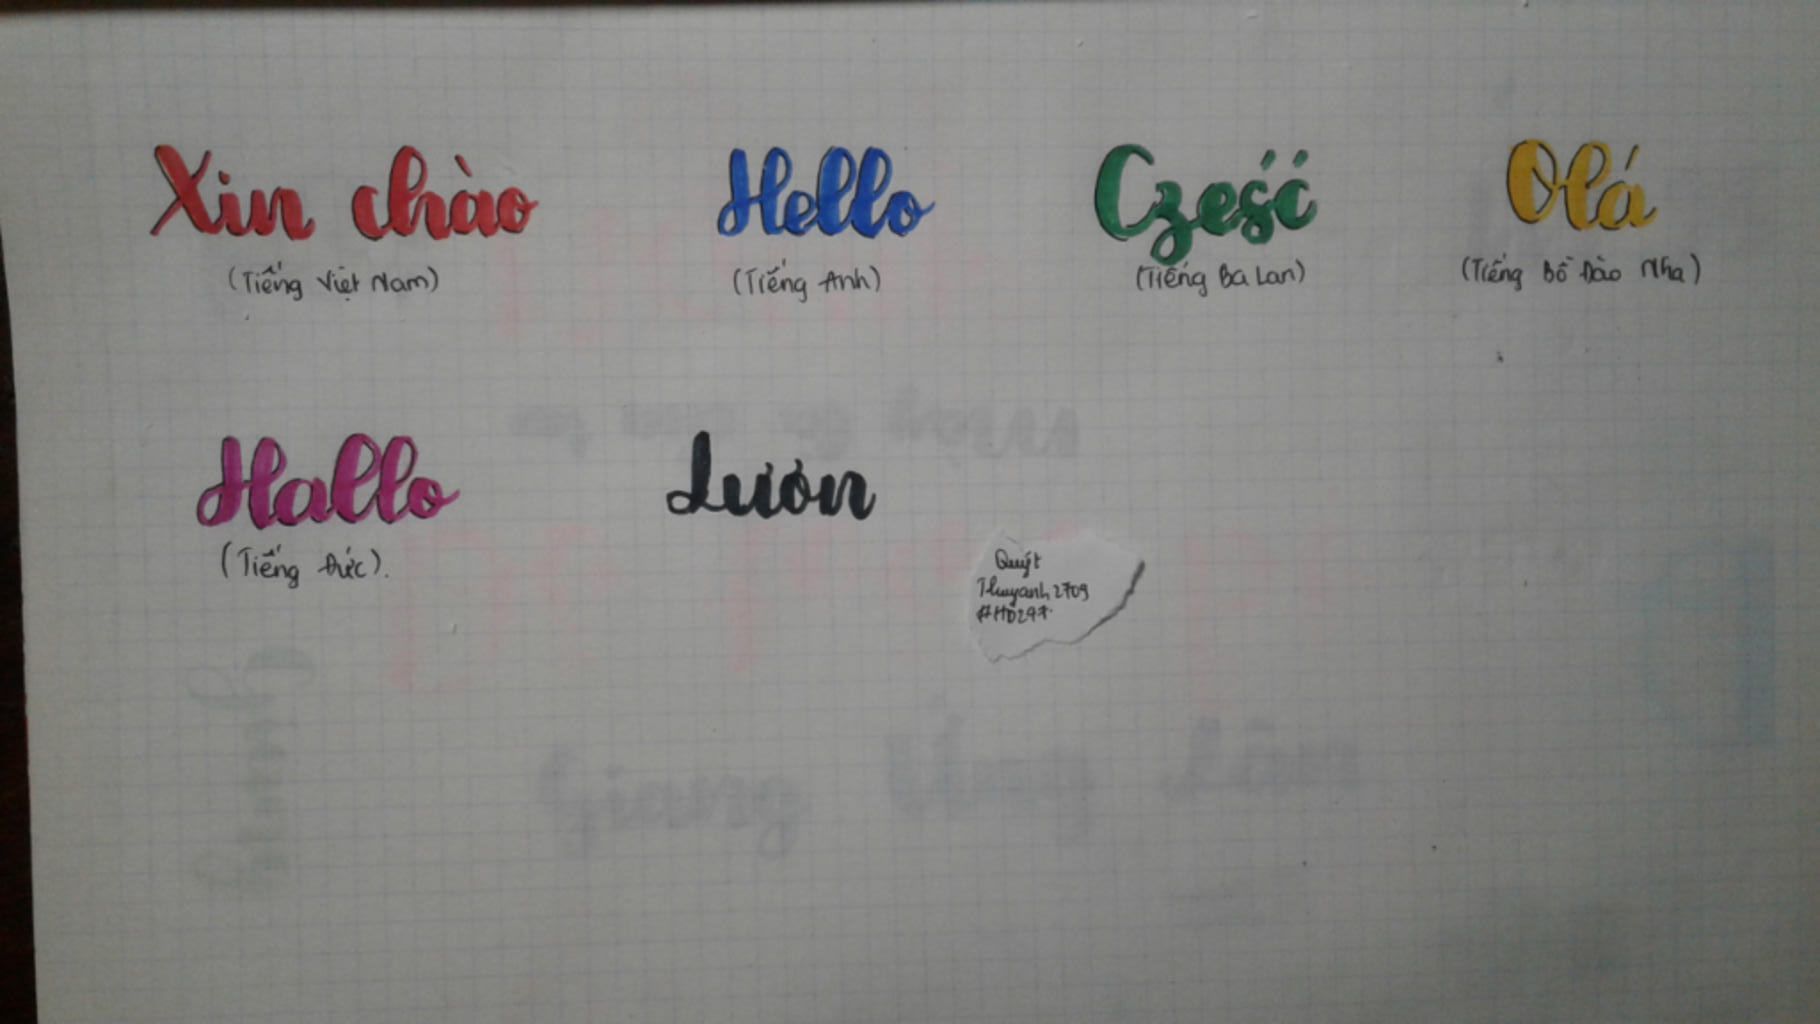 Xin chào
(Tiếng Việt Nam)
Hello
(Tiếng Anh)
Cześć
(Tiếng Ba Lan)
Olá
(Tiếng Bồ Đào Nha)
Hallo
(Tiếng Đức).
Lươn
Quýt
Thuyanh2709